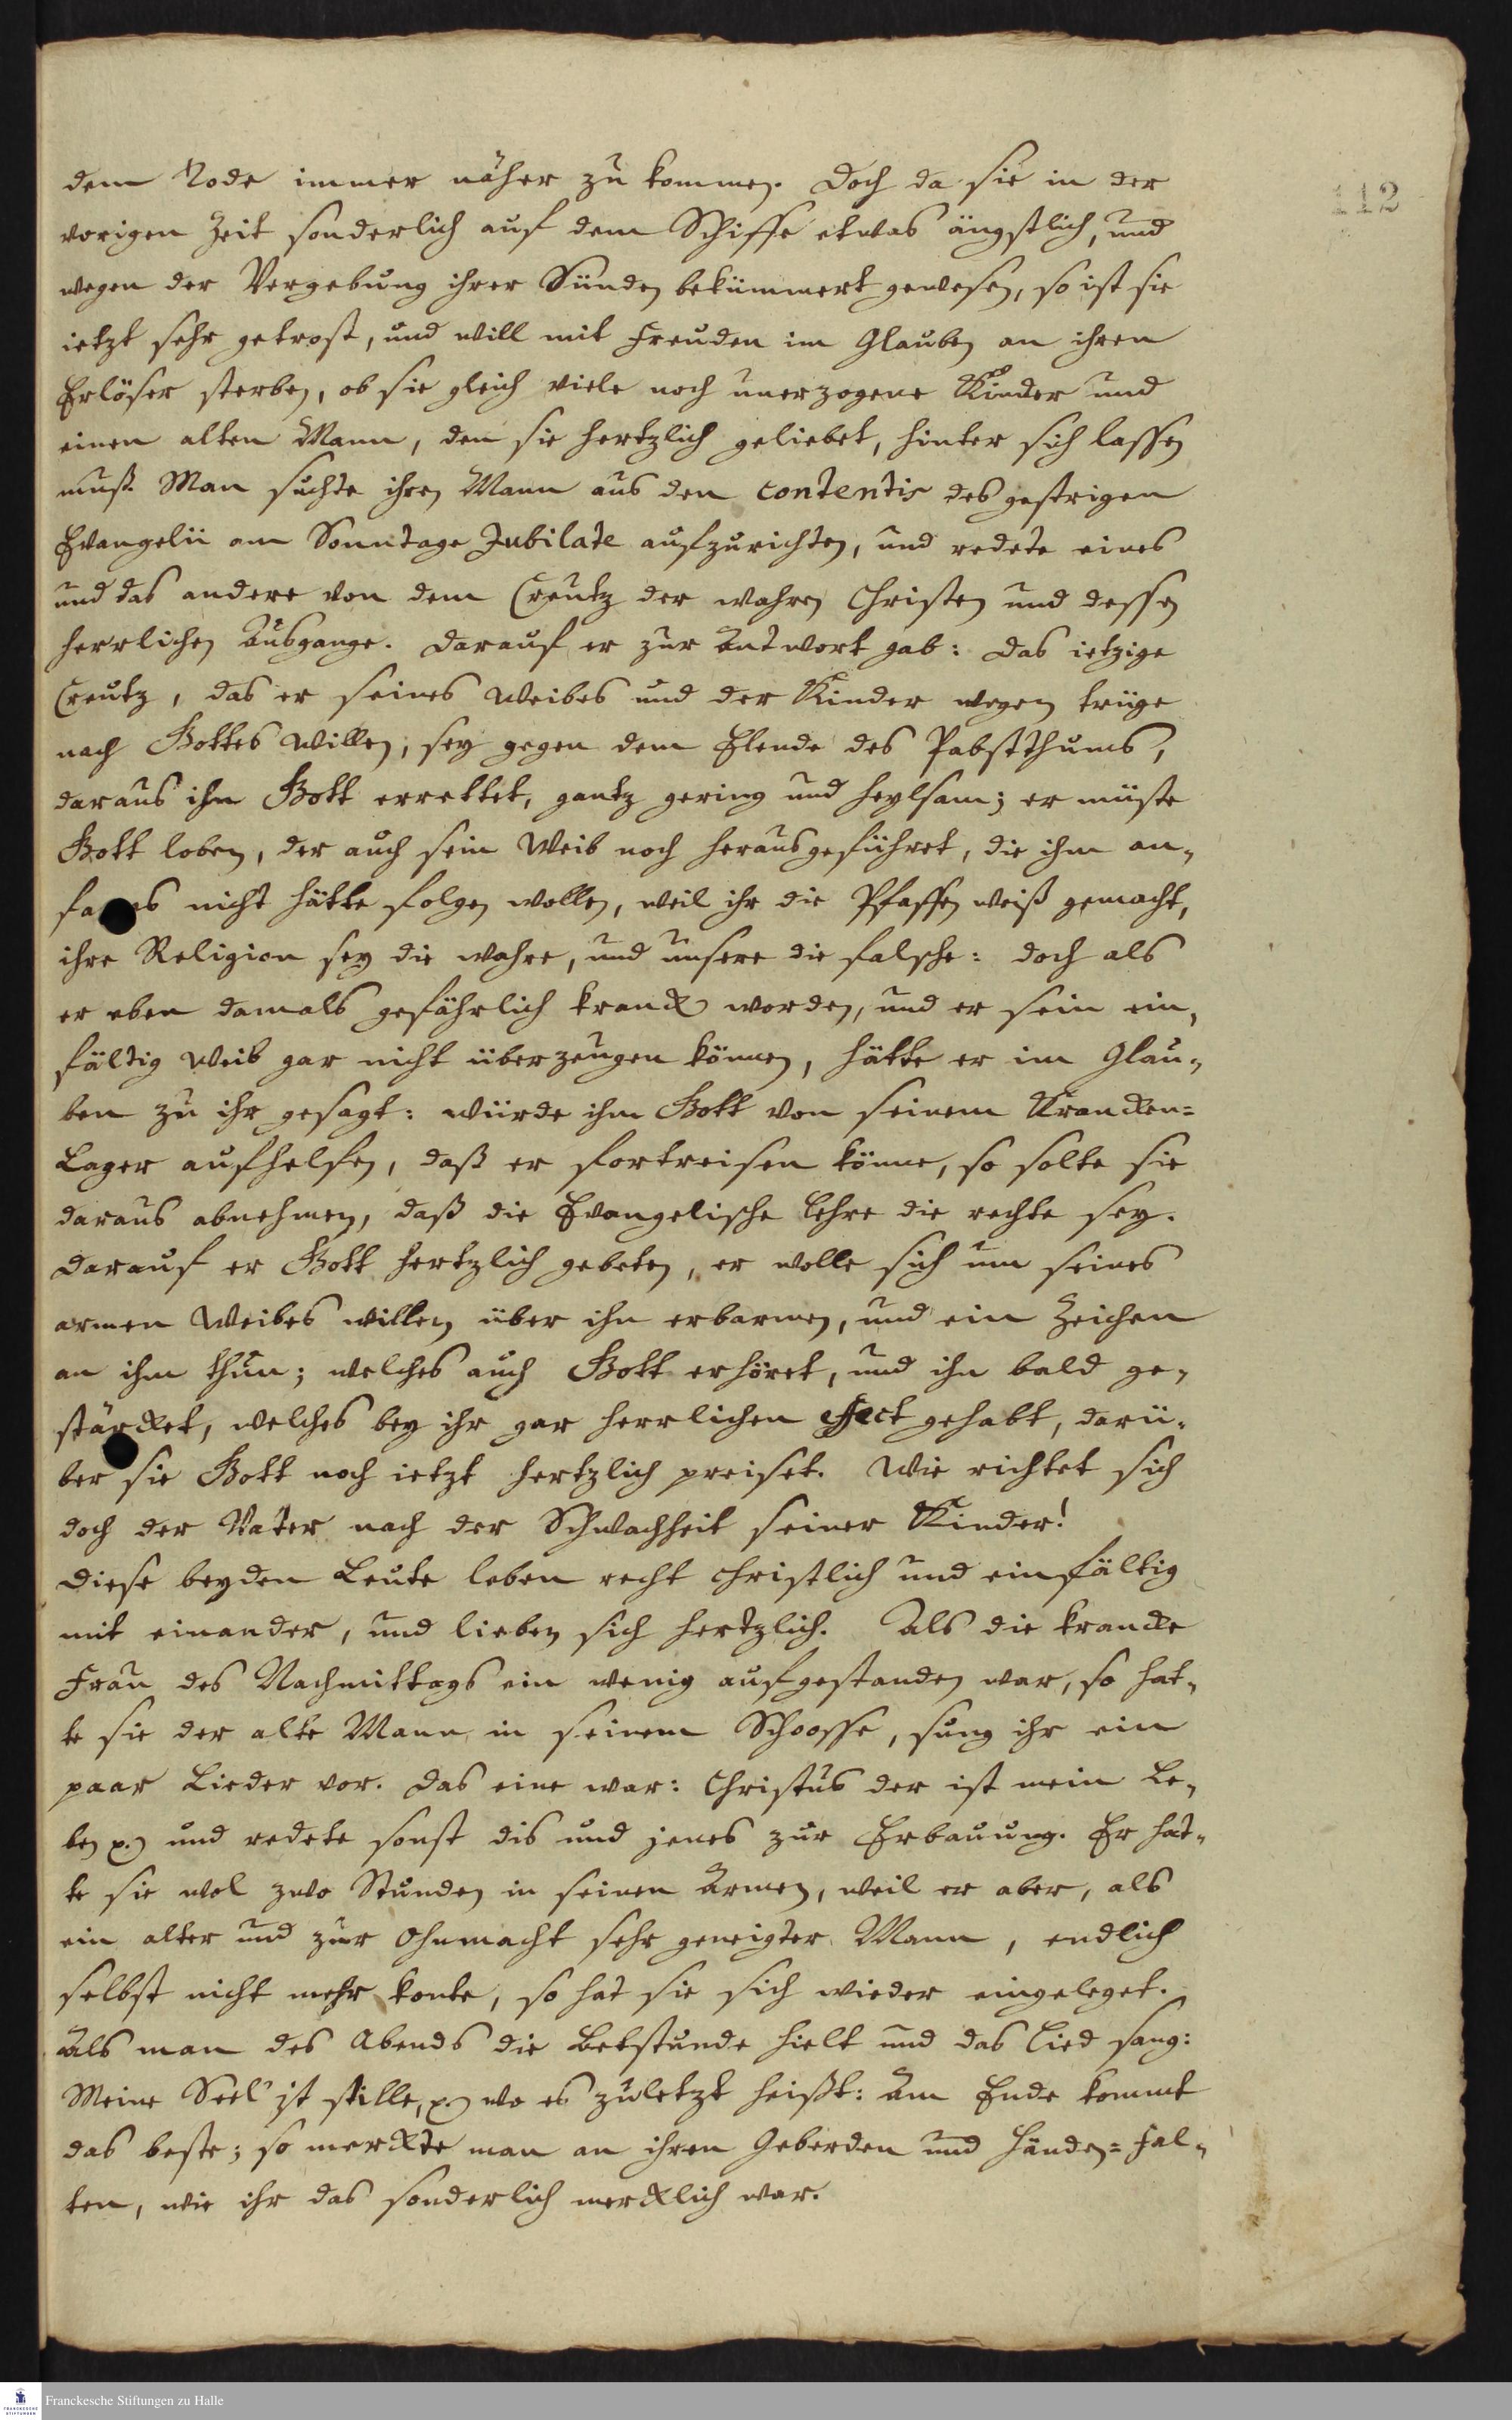 112
dem Tode immer näher zu kommen. Doch da sie in der
vorigen Zeit sonderlich auf dem Schiffe etwas ängstlich, und
wegen der Vergebung ihrer Sünden bekümmert gewesen, so ist sie
ietzt sehr getrost, und will mit Freuden im Glauben an ihren
Erlöser sterben, ob sie gleich viele noch unerzogene Kinder und
einen alten Mann, den sie hertzlich geliebet, hinter sich lassen
muß. Man suchte ihren Mann aus den contentis des gestrigen
Evangelii am Sonntage Jubilate aufzurichten, und redete eines
und das andere von dem Creutz der wahren Christen und dessen
herrlichen Ausgange. Darauf er zur Antwort gab: Das ietzige
Creutz, das er seines Weibes und der Kinder wegen trüge
nach Gottes Willen, sey gegen dem Elende des Pabstthums,
daraus ihn Gott errettet, gantz gering und heylsam; er müste
Gott loben, der auch sein Weib noch herausgeführet, die ihm an-
fangs nicht hätte folgen wollen, weil ihr die Pfaffen weiß gemacht,
ihre Religion sey die wahre, und unsere die falsche: doch als
er eben damals gefährlich kranck worden, und er sein ein-
fältig Weib gar nicht überzeugen können, hätte er im Glau-
ben zu ihr gesagt: würde ihm Gott von seinem Krancken=
Lager aufhelfen, daß er fortreisen könne, so solte sie
daraus abnehmen, daß die Evangelische Lehre die rechte sey.
Darauf er Gott hertzlich gebeten, er wolle sich um seines
armen Weibes willen über ihn erbarmen, und ein Zeichen
an ihm thun; welches auch Gott erhöret, und ihn bald ge-
stärcket, welches bey ihr gar herrlichen effect gehabt, darü-
ber sie Gott noch ietzt hertzlich preiset. Wie richtet sich
doch der Vater nach der Schwachheit seiner Kinder!
Diese beyden Leute leben recht christlich und einfältig
mit einander, und lieben sich hertzlich. Als die krancke
Frau des Nachmittags ein wenig aufgestanden war, so hat-
te sie der alte Mann in seinem Schoosse, sung ihr ein
paar Lieder vor. Das eine war: Christus der ist mein Le-
ben p. und redete sonst dis und jenes zur Erbauung. Er hat-
te sie wol zwo Stunden in seinen Armen, weil er aber, als
ein alter und zur Ohnmacht sehr geneigter Mann, endlich
selbst nicht mehr konte, so hat sie sich wieder eingeleget.
Als man des Abends die Betstunde hielt und das Lied sang:
Meine Seel ist stille, p. wo es zuletzt heißt: Am Ende kommt
das beste; so merckte man an ihren Geberden und Händen=Fal-
ten, wie ihr das sonderlich mercklich war.
Franckesche Stiftungen zu Halle